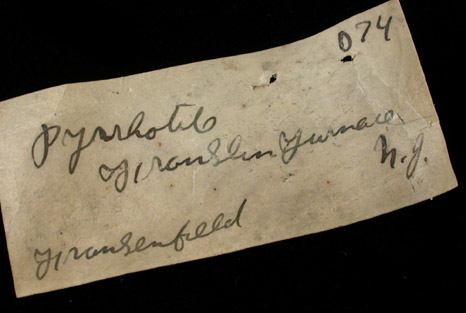 074
Pyrrhotite
Franklin Furnace
N.J.
Frankenfield